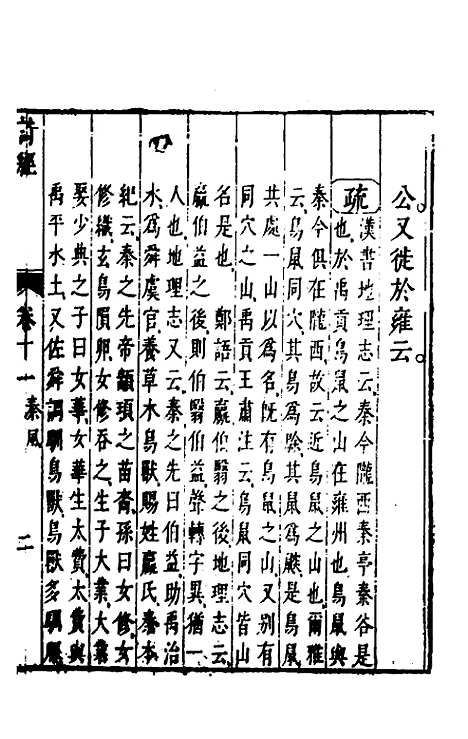 公又徙於雍云。
疏漢書地理志云秦今隴西秦亭秦谷是
也於禹貢鳥鼠之山在雍州也鳥鼠與
秦今俱在隴西故云近鳥鼠之山也爾雅
云鳥鼠同穴其鳥爲鵌其鼠爲鼵是鳥鼠
共處一山以爲名旣有鳥鼠之山又別有
同穴之山禹貢王肅注云鳥鼠同穴皆山
名是也　鄭語云嬴伯翳之後地理志云
嬴伯益之後則伯翳伯益聲轉字異猶一
人也地理志又云秦之先曰伯益助禹治
水爲舜虞官養草木鳥獸賜姓嬴氏秦本
紀云秦之先帝顓頊之苗裔孫曰女修女
修織玄鳥隕卵女修吞之生子大業大業
娶少典之子曰女華女華生太費太費與
禹平水土又佐舜調馴鳥獸鳥獸多馴服
詩經　卷十一　秦風　二